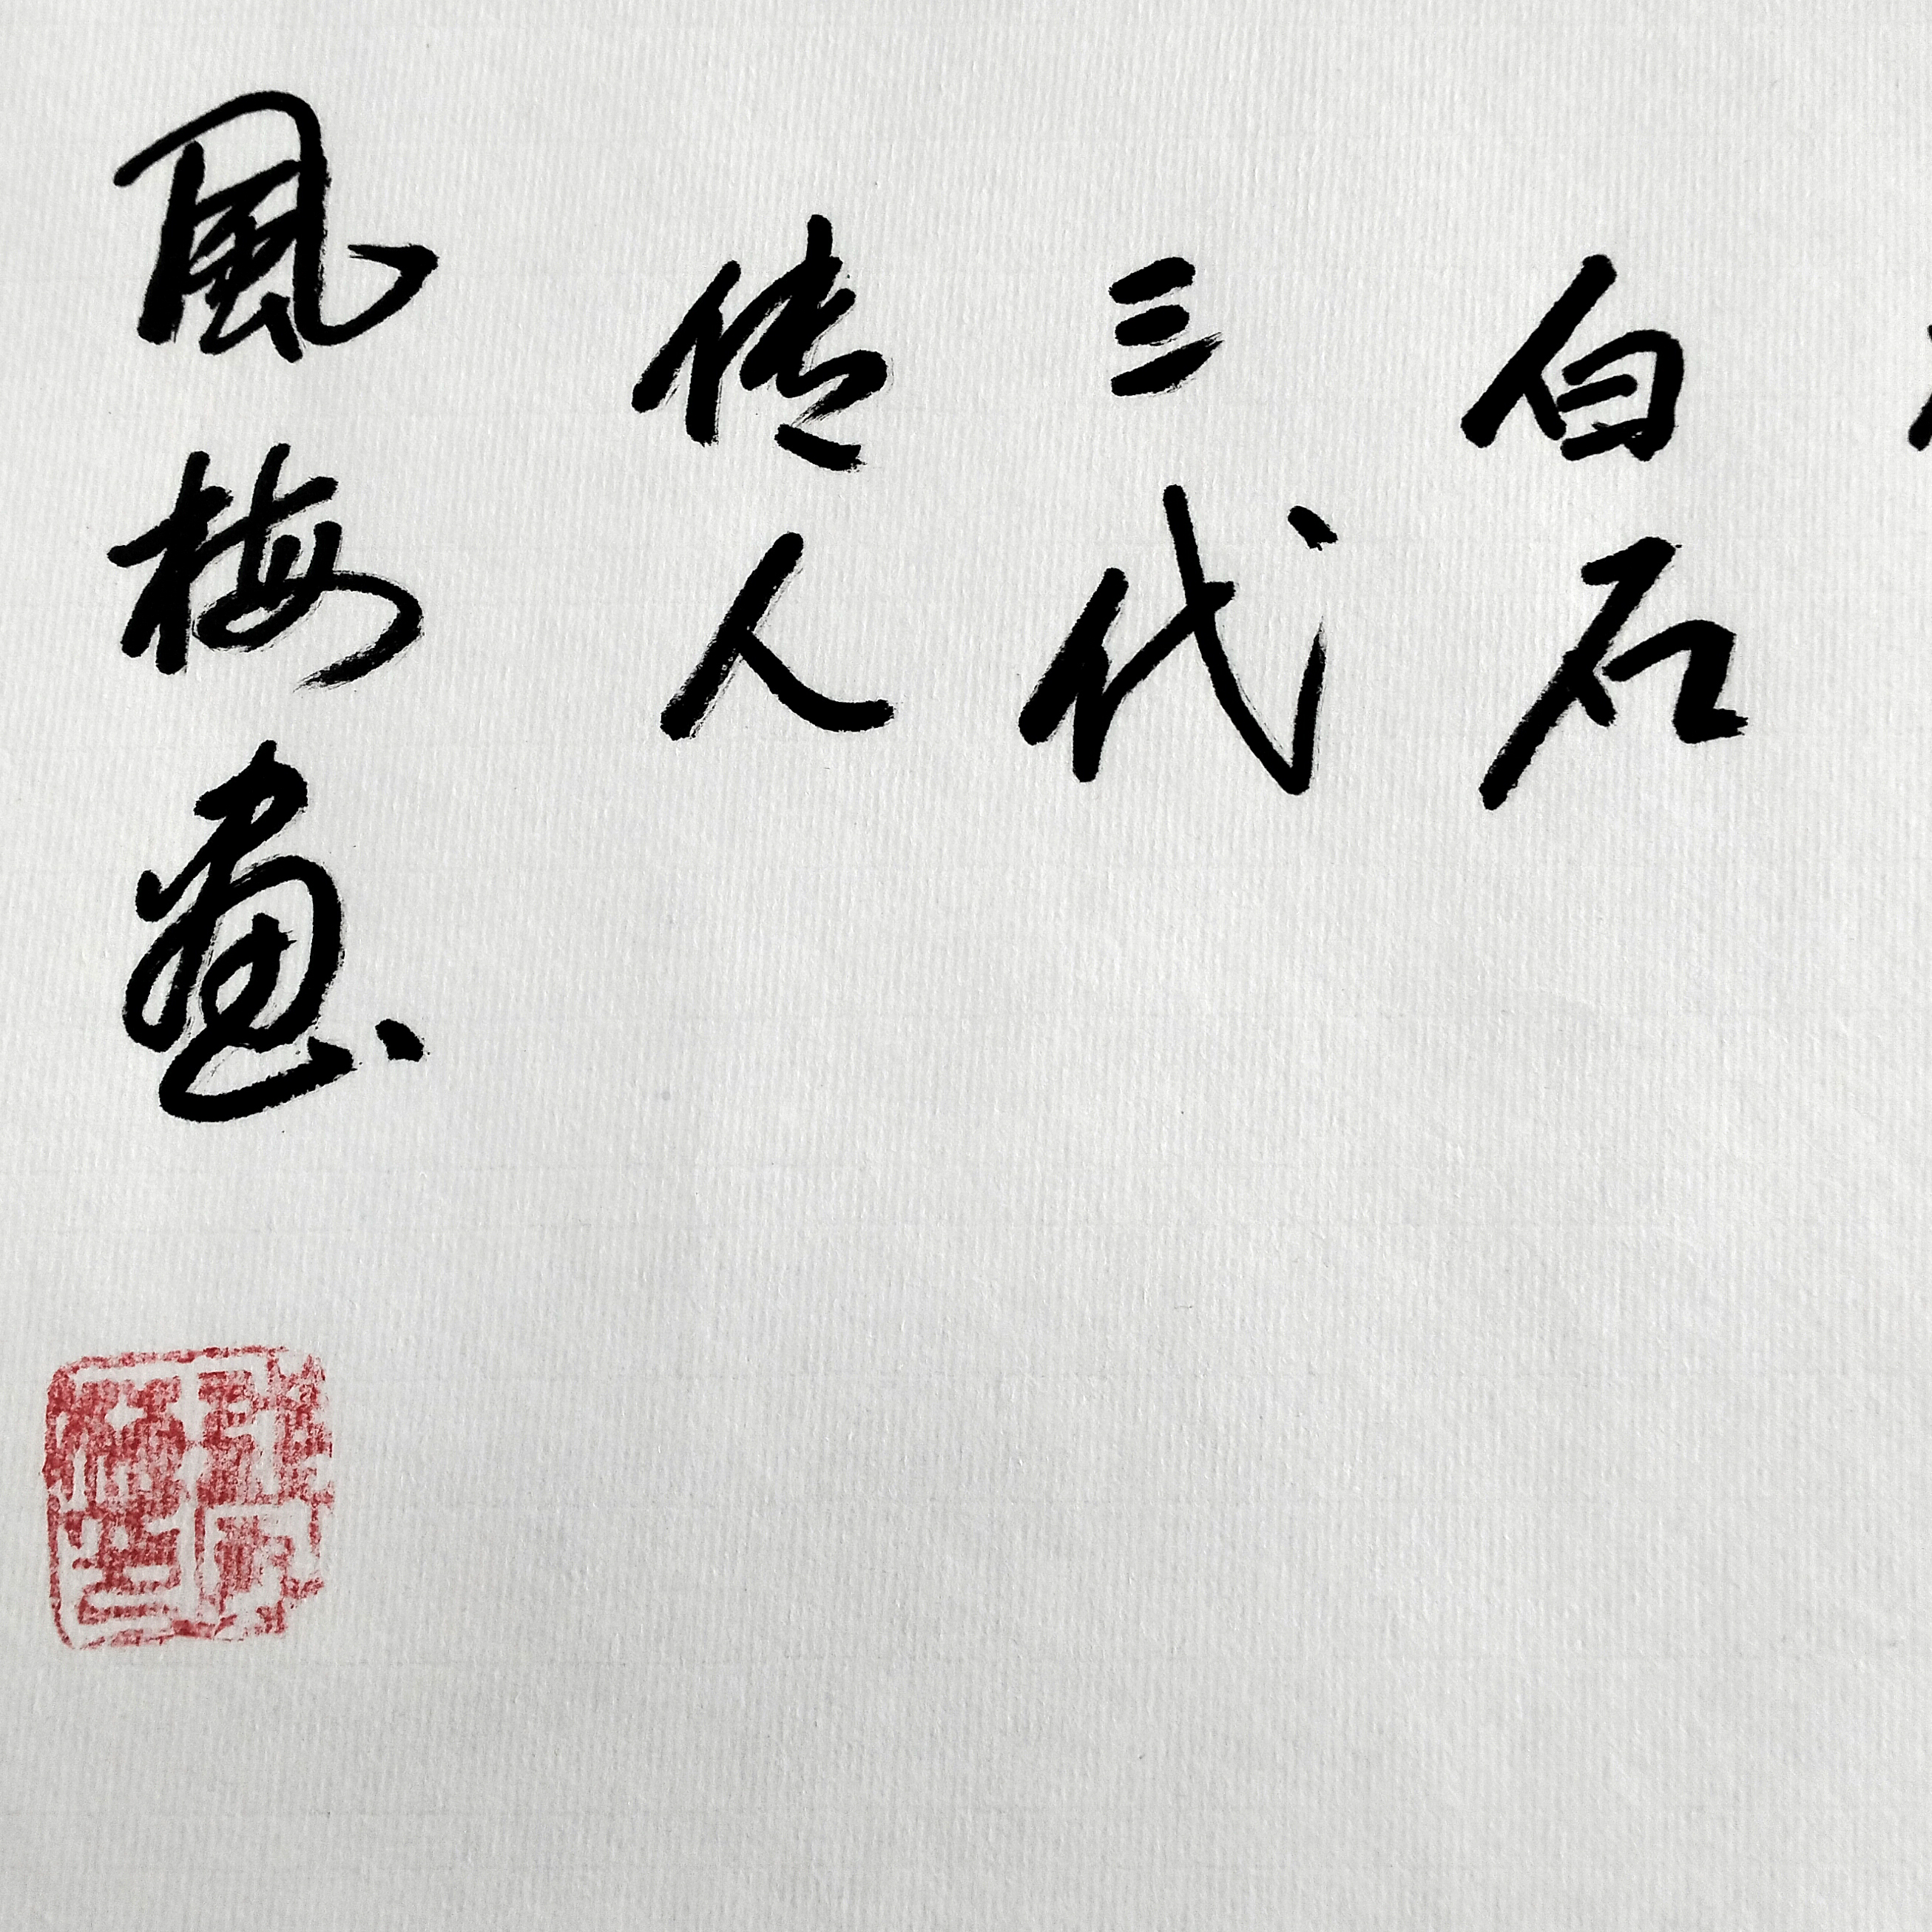 白石
三代
传人
風梅畫